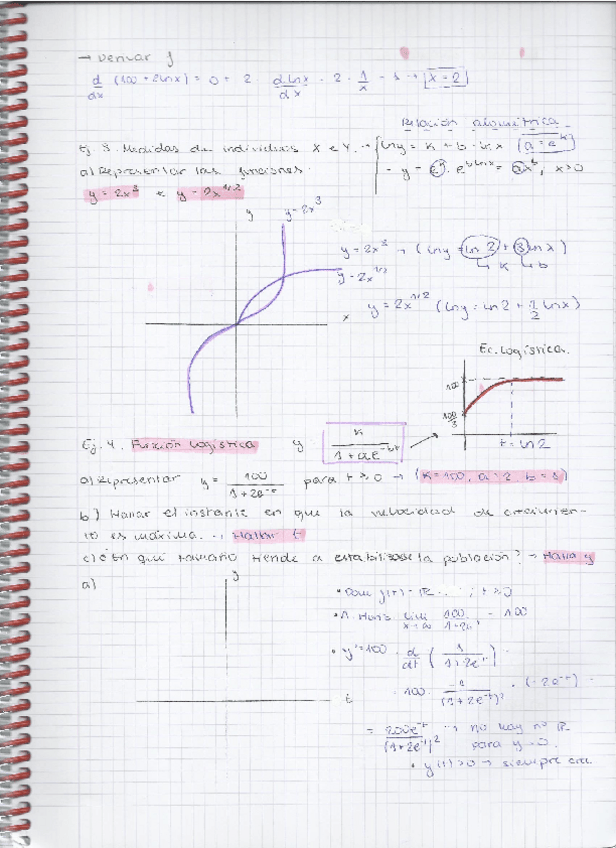 → Derivar f
d/dx (100 + 2lnx) = 0 + 2 · d lnx/dx = 2 · 1/x
Relación alométrica
Ej. 3. Medidas de individuos X e Y. → lny = K + b · lnx (a = e^K)
a) Representar las funciones. - y = e^K · e^blnx = ax^b, x>0
y = 2x³ y = 2x^1/2
y
y = 2x³
y = 2x³ → (lny = ln2 + 3lnx)
↳ K ↳ b
y = 2x^1/2
x
y = 2x^1/2 (lny = ln2 + 1/2 lnx)
Ec. logística.
100
100/3
t = ln2
Ej. 4. Función logística y K / 1 + ae^-bt
a) Representar y = 100 / 1 + 2e^-t para t ≥ 0 → (K = 100, a = 2, b = 1)
b) Hallar el instante en que la velocidad de crecimien-
to es máxima. Hallar t
c) ¿En qué tamaño tiende a estabilizarse la población? → Halla y
a)
y
t
• Dom f(t) = ℝ t ≥ 0
• A. Horiz lim x→∞ 100 / 1+2e = 100
• y' = 100 · d/dt (1 / 1+2e^-t) =
100 · -1 / (1+2e^-t)² · (-2e^-t) =
= 200e^-t / (1+2e^-t)² → no hay nº ℝ
para y = 0.
• y'(t) > 0 → siempre cre.